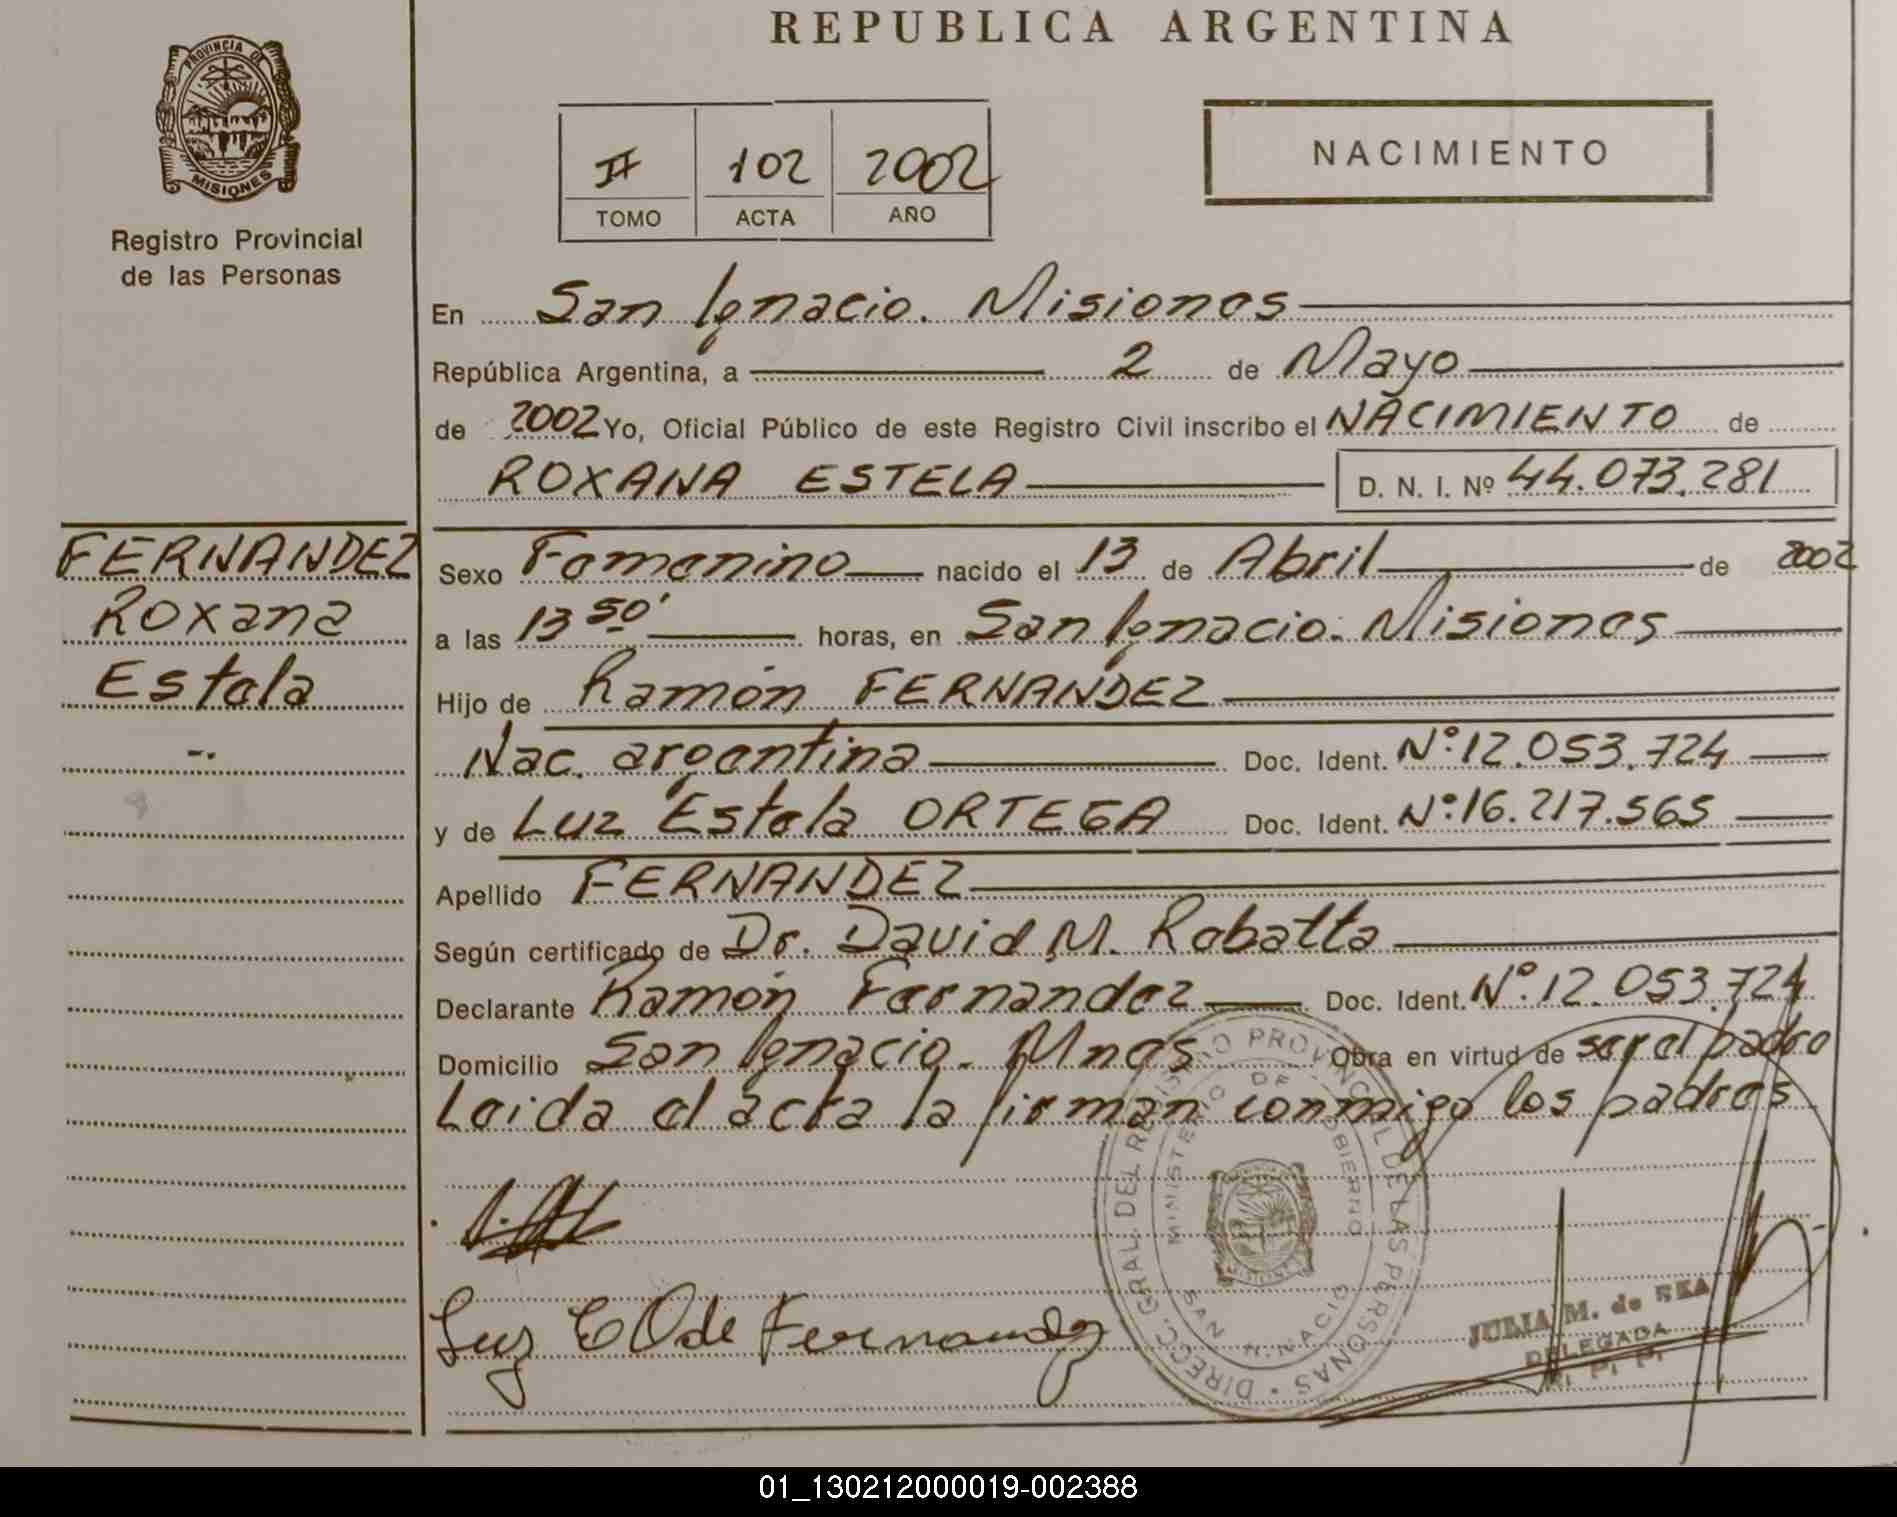 REPUBLICA ARGENTINA
PROVINCIA DE
MISIONES
Registro Provincial
de las Personas
II 102 2002
TOMO ACTA AÑO
NACIMIENTO
En San Ignacio. Misiones
República Argentina, a 2 de Mayo
de 2002 Yo, Oficial Público de este Registro Civil inscribo el NACIMIENTO de
ROXANA ESTELA D. N. I. Nº 44.073.281
FERNANDEZ
Roxana
Estela
Sexo Femenino nacido el 13 de Abril de 2002
a las 13 50' horas, en San Ignacio. Misiones
Hijo de Ramón FERNANDEZ
Nac. argentina Doc. Ident. Nº:12.053.724
y de Luz Estela ORTEGA Doc. Ident. Nº:16.217.565
Apellido FERNANDEZ
Según certificado de Dr. David M. Rabatta
Declarante Ramón Fernandez Doc. Ident. Nº.12.053.724
Domicilio San Ignacio. Mnes Obra en virtud de ser el padre
Leida el acta la firman conmigo los padres
Luz E O de Fernandez
DIRECC. GRAL. DEL REGISTRO PROVINCIAL DE LAS PERSONAS
MINISTERIO DE GOBIERNO
SAN IGNACIO
MISIONES
JULIA M. de
DELEGADA
R. P. P.
01_130212000019-002388